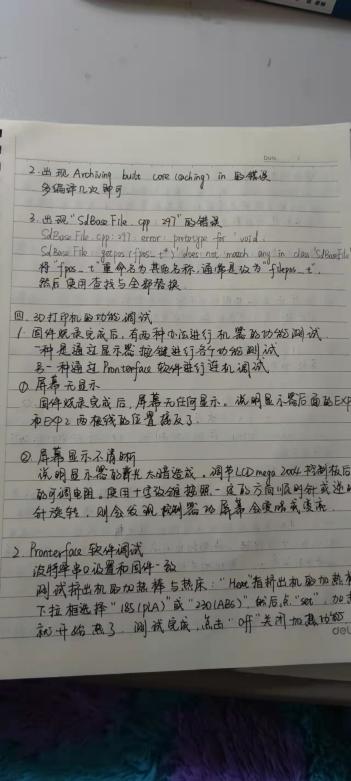 Date
2. 出现 Archiving built core (caching) in 的错误
多编译几次即可
3. 出现 "SdBaseFile.cpp:297" 的错误
SdBaseFile.cpp:297: error: prototype for 'void
SdBaseFile::getpos(fpos_t*)' does not match any in class 'SdBaseFile'
将 "fpos_t" 重命名为其他名称,通常是改为 "filepos_t",
然后使用查找与全部替换.
四. 3D打印机的功能调试
1. 固件烧录完成后,有两种办法进行机器的功能测试
一种是通过显示器按键进行各个功能测试
另一种通过 Pronterface 软件进行连机调试
① 屏幕无显示
固件烧录完成后,屏幕无任何显示。说明显示器后面的EXP
和EXP2两接线的位置接反了.
② 屏幕显示不清晰
说明显示器的背光太暗造成,调节LCD mega 2004 控制板后
的可调电阻。使用十字改锥按照一定的方向顺时针或逆时
针旋转,则会发现控制器的屏幕会变暗或变亮
2. Pronterface 软件调试
波特率串口设置和固件一致
测试挤出机的加热棒与热床:"Heat"指挤出机的加热
下拉框选择 "185(PLA)" 或 "230(ABS)", 然后点 "set",加
就开始热了.测试完成,点击 "Off" 关闭加热功能
deli